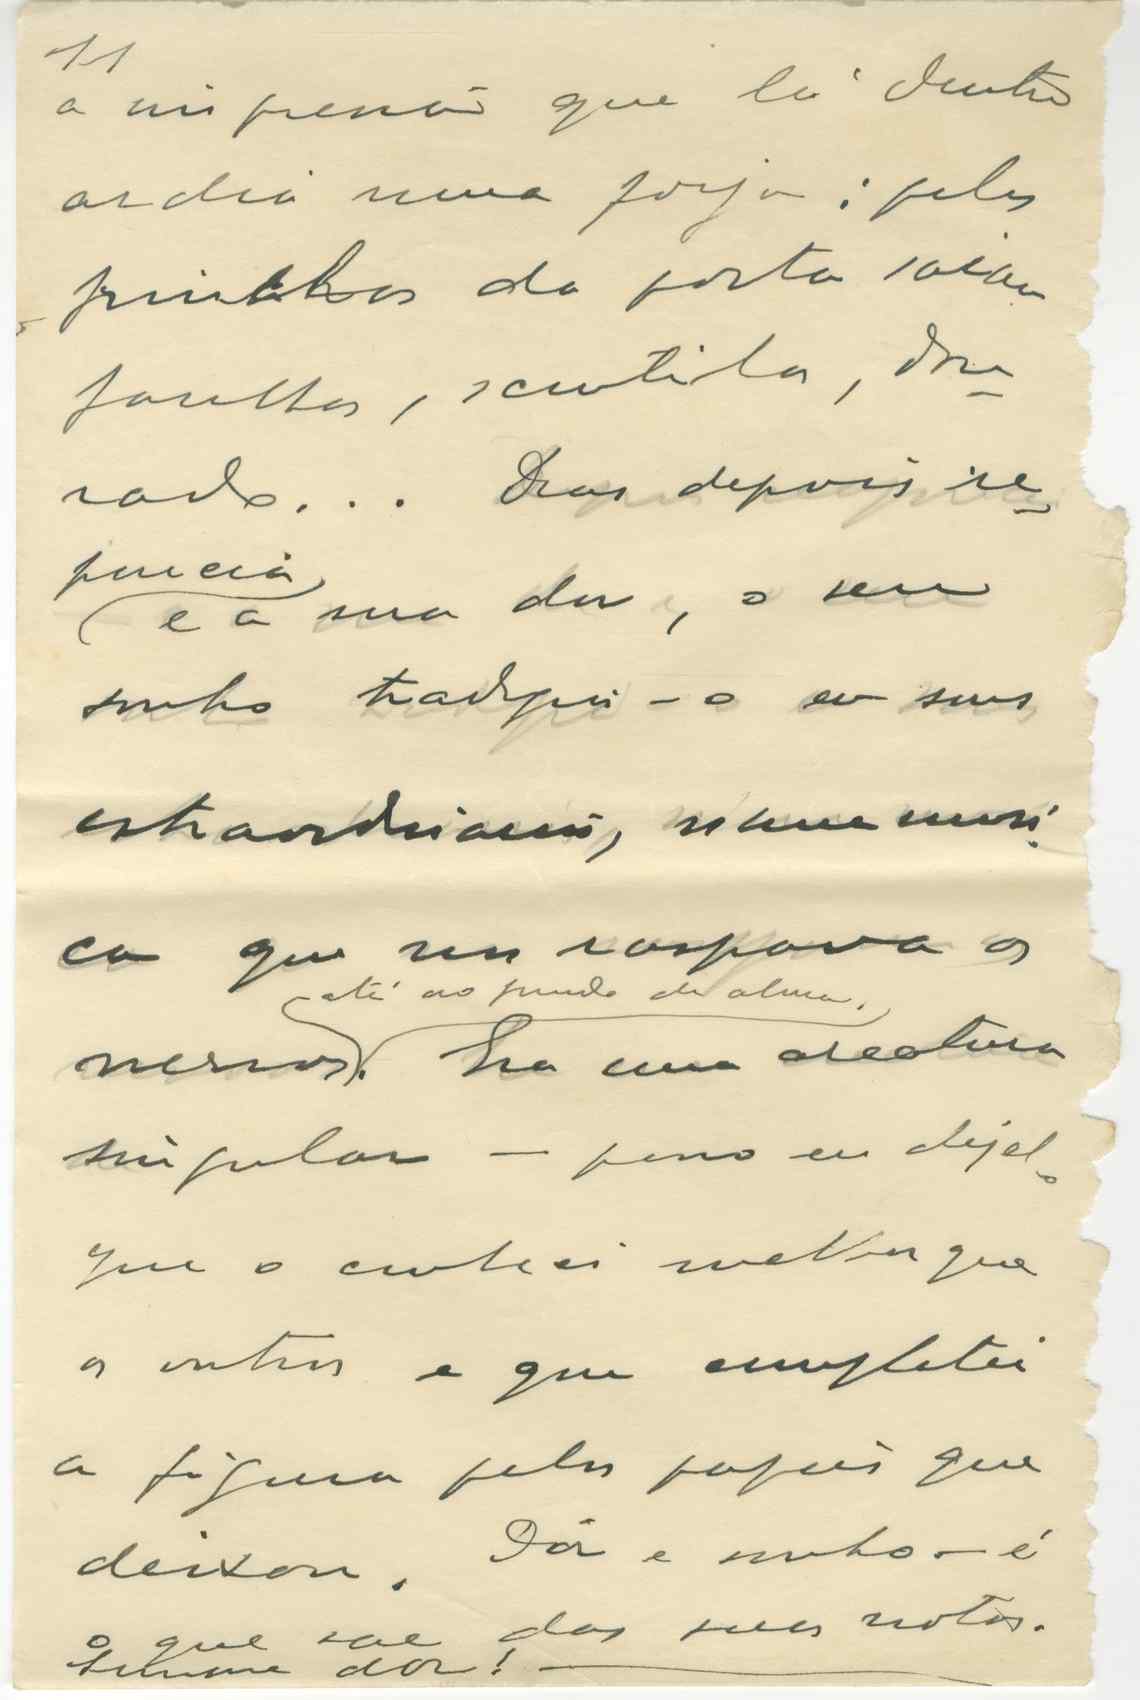 11
a impressão que lá dentro
ardia numa forja: pelos
frinchas da porta saiam
faulhas, scentilas, dou-
rado... Dias depois re-
quecia
e a sua dor, o seu
sonho tradusiu-o em sons
extraordinarios, numa musi-
ca que nos raspava os
até ao fundo da alma.
nervos. Era uma creatura
singular — penso eu hoje
que o conheci melhor que
os outros e que completei
a figura pelos papeis que
deixou. Dôr e sonho - é
o que sae das suas notas.
Sonho e dor! —